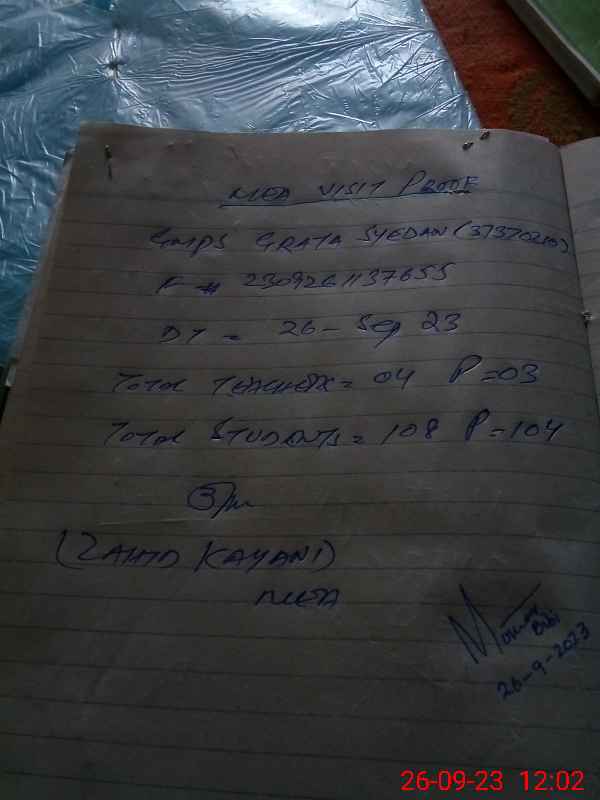 MEA VISIT PROOF
GMPS GRATA SYEDAN (37370210)
F # 2309261137655
DT = 26 - Sep 23
Total TEACHERS = 04 P = 03
Total STUDENTS = 108 P = 104
(ZAHID KAYANI)
MEA
Bibi
26-9-2023
26-09-23 12:02